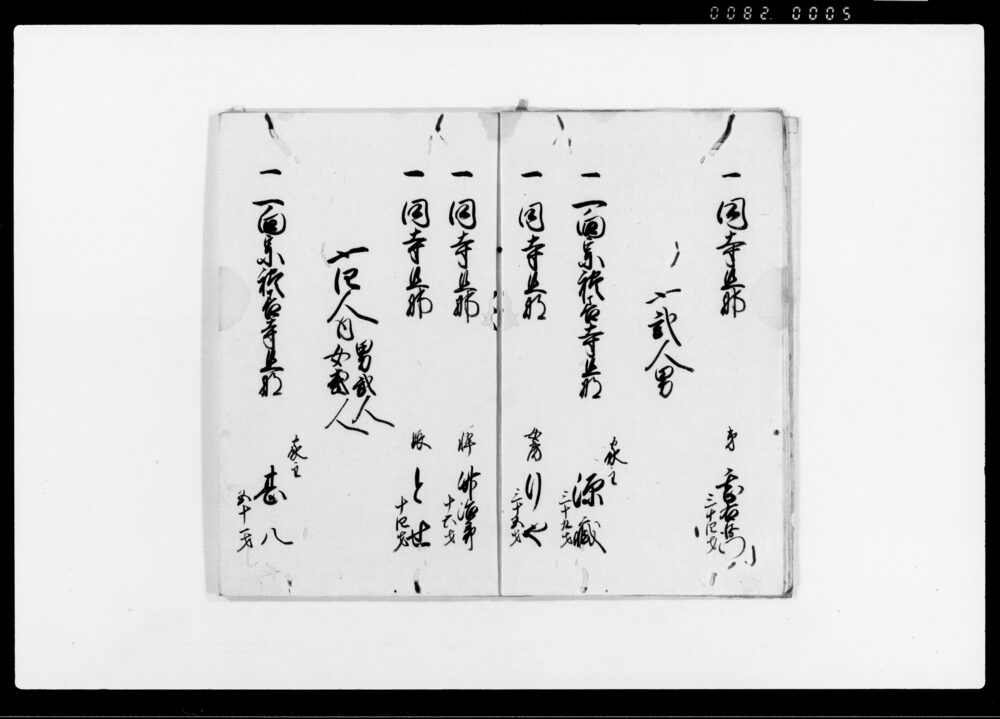 0082 0005
一 同寺旦那 弟
三十四才
〆弐人男
一 一向宗 寺旦那 家主 源蔵
三十九才
一 同寺旦那 女房 りせ
三十五才
一 同寺旦那 忰
十六才
一 同寺旦那 娘 とせ
十四才
〆四人内 男弐人
女弐人
一 一向宗 寺旦那 家主 甚八
五十一才